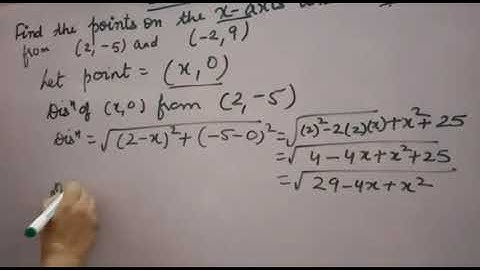 Find the points on the x-axis
from (2, -5) and (-2, 9)
Let point = (x, 0)
Disⁿ of (x, 0) from (2, -5)
Disⁿ = √(2-x)² + (-5-0)² = √(2)² - 2(2)(x) + x² + 25
= √4 - 4x + x² + 25
= √29 - 4x + x²